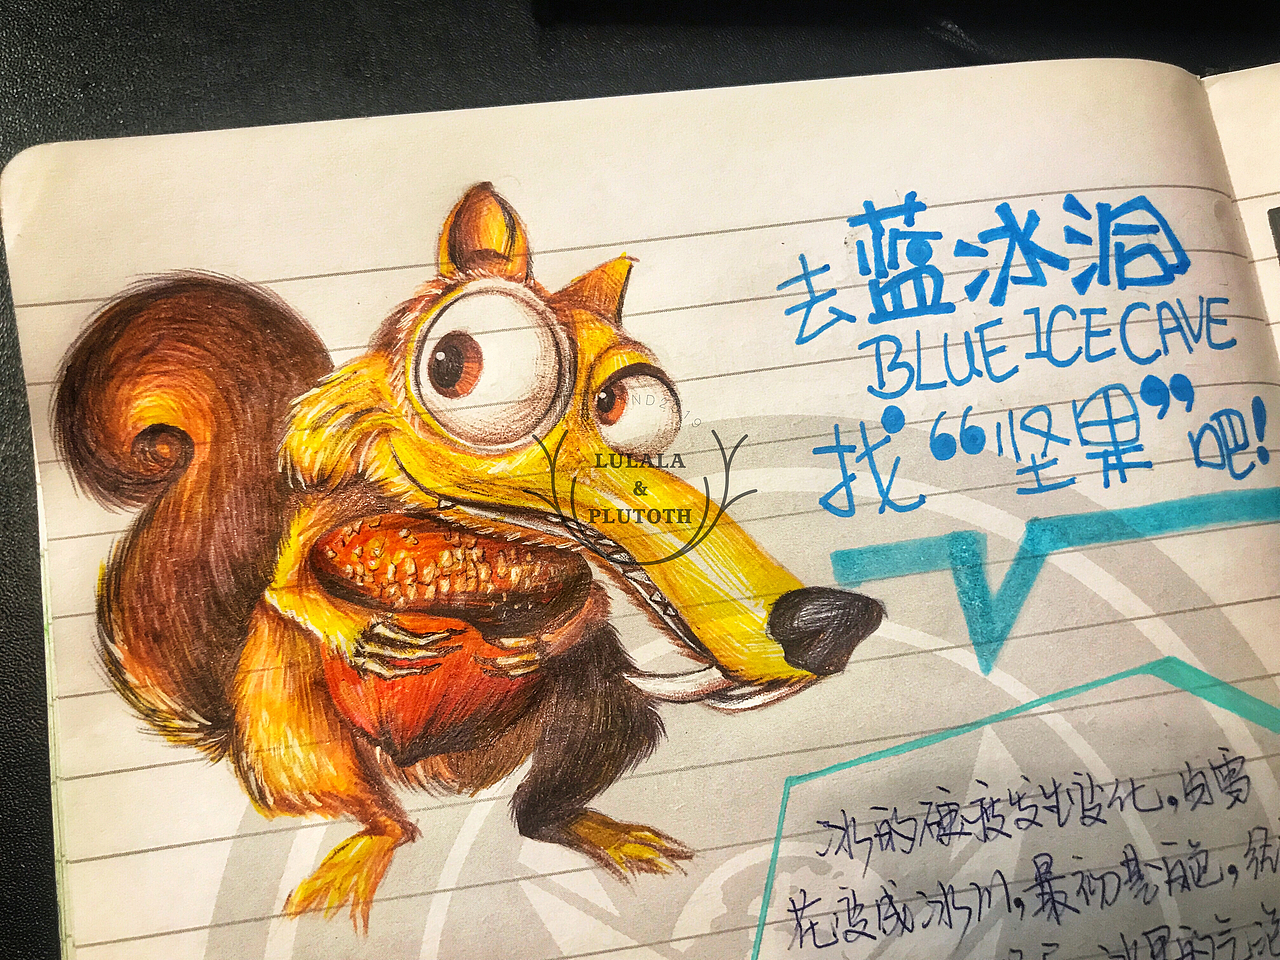 去蓝冰洞
BLUE ICE CAVE
找“坚果”吧!
LULALA
&
PLUTOTH
冰的硬度发生变化,当雪
花变成冰川,最初是白色,
冰里的气泡